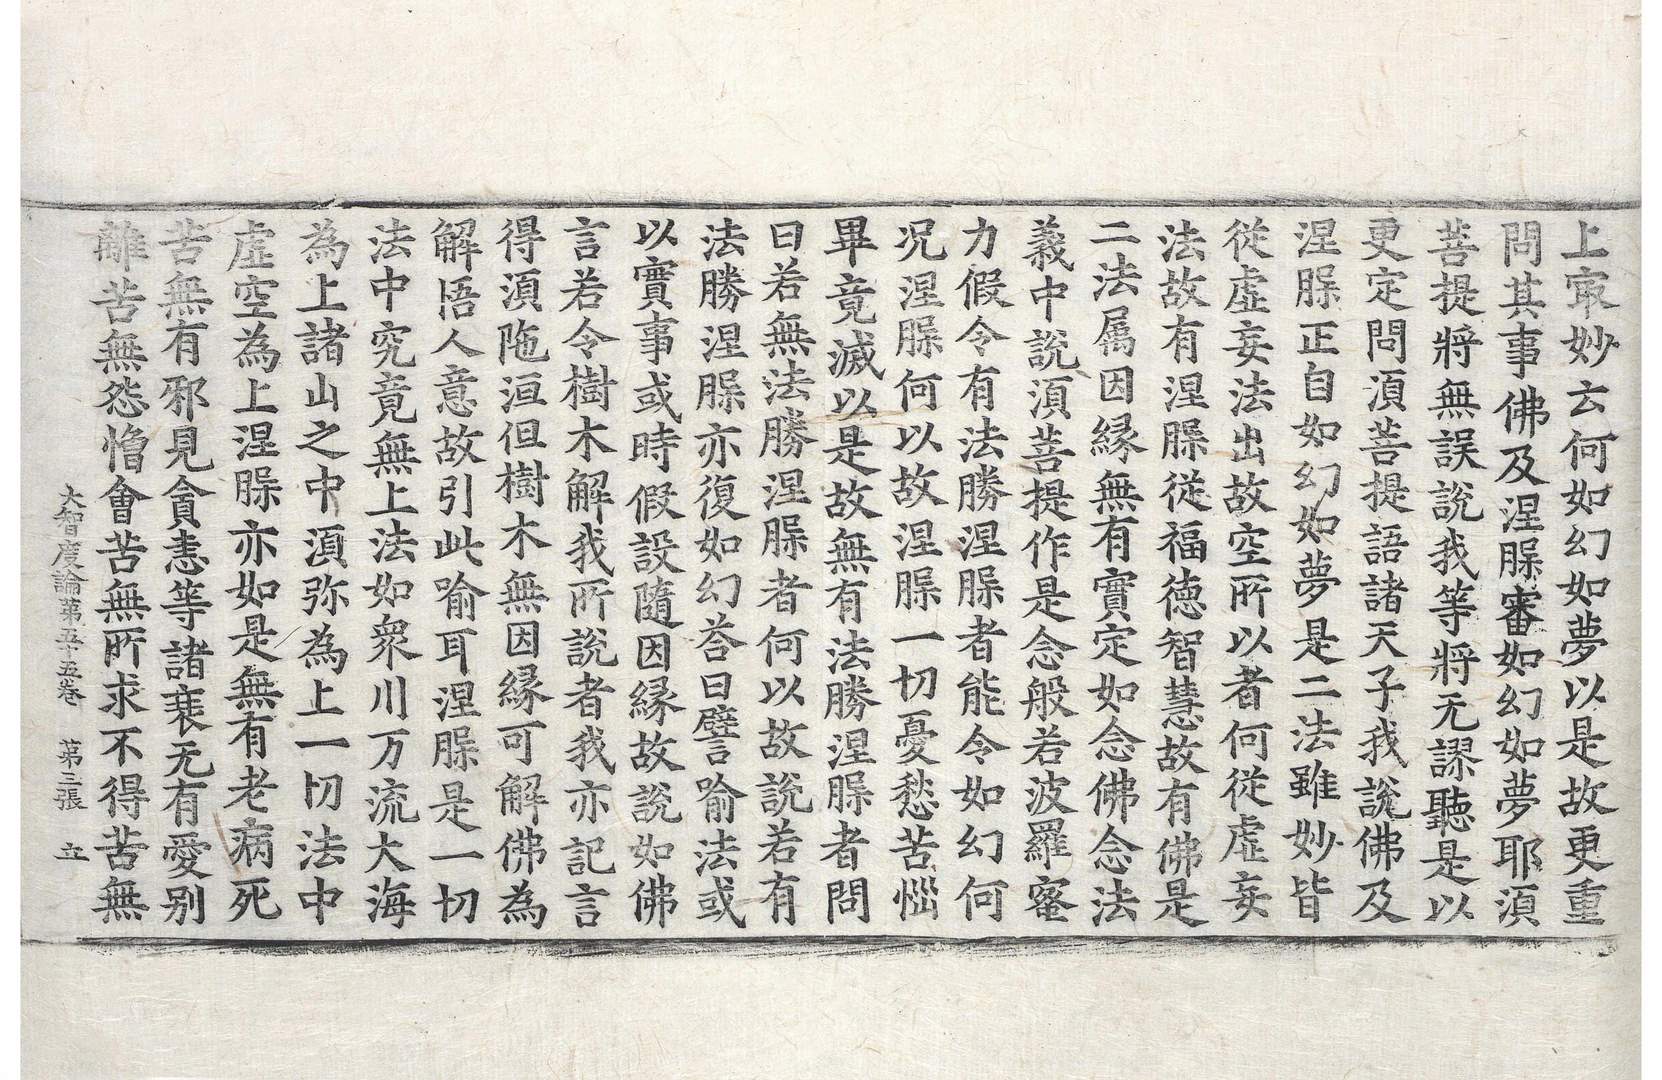 上㝡妙云何如幻如夢以是故更重
問其事佛及涅槃審如幻如夢耶湏
菩提將無誤說我等將无謬聽是以
更定問湏菩提語諸天子我說佛及
涅槃正自如幻如夢是二法雖妙皆
從虛妄法出故空所以者何從虛妄
法故有涅槃從福徳智慧故有佛是
二法属因縁無有實定如念佛念法
義中說湏菩提作是念般若波羅蜜
力假令有法勝涅槃者能令如幻何
况涅槃何以故涅槃一切憂愁苦惱
畢竟滅以是故無有法勝涅槃者問
曰若無法勝涅槃者何以故說若有
法勝涅槃亦復如幻荅曰譬喻法或
以實事或時假設隨因縁故說如佛
言若令樹木解我所說者我亦記言
得湏陁洹但樹木無因縁可解佛為
解悟人意故引此喻耳涅槃是一切
法中究竟無上法如衆川万流大海
為上諸山之中湏弥為上一切法中
虛空為上涅槃亦如是無有老病死
苦無有邪見貪恚等諸衰无有愛别
離苦無怨憎會苦無所求不得苦無
大智度論第五十五卷　第三張　立